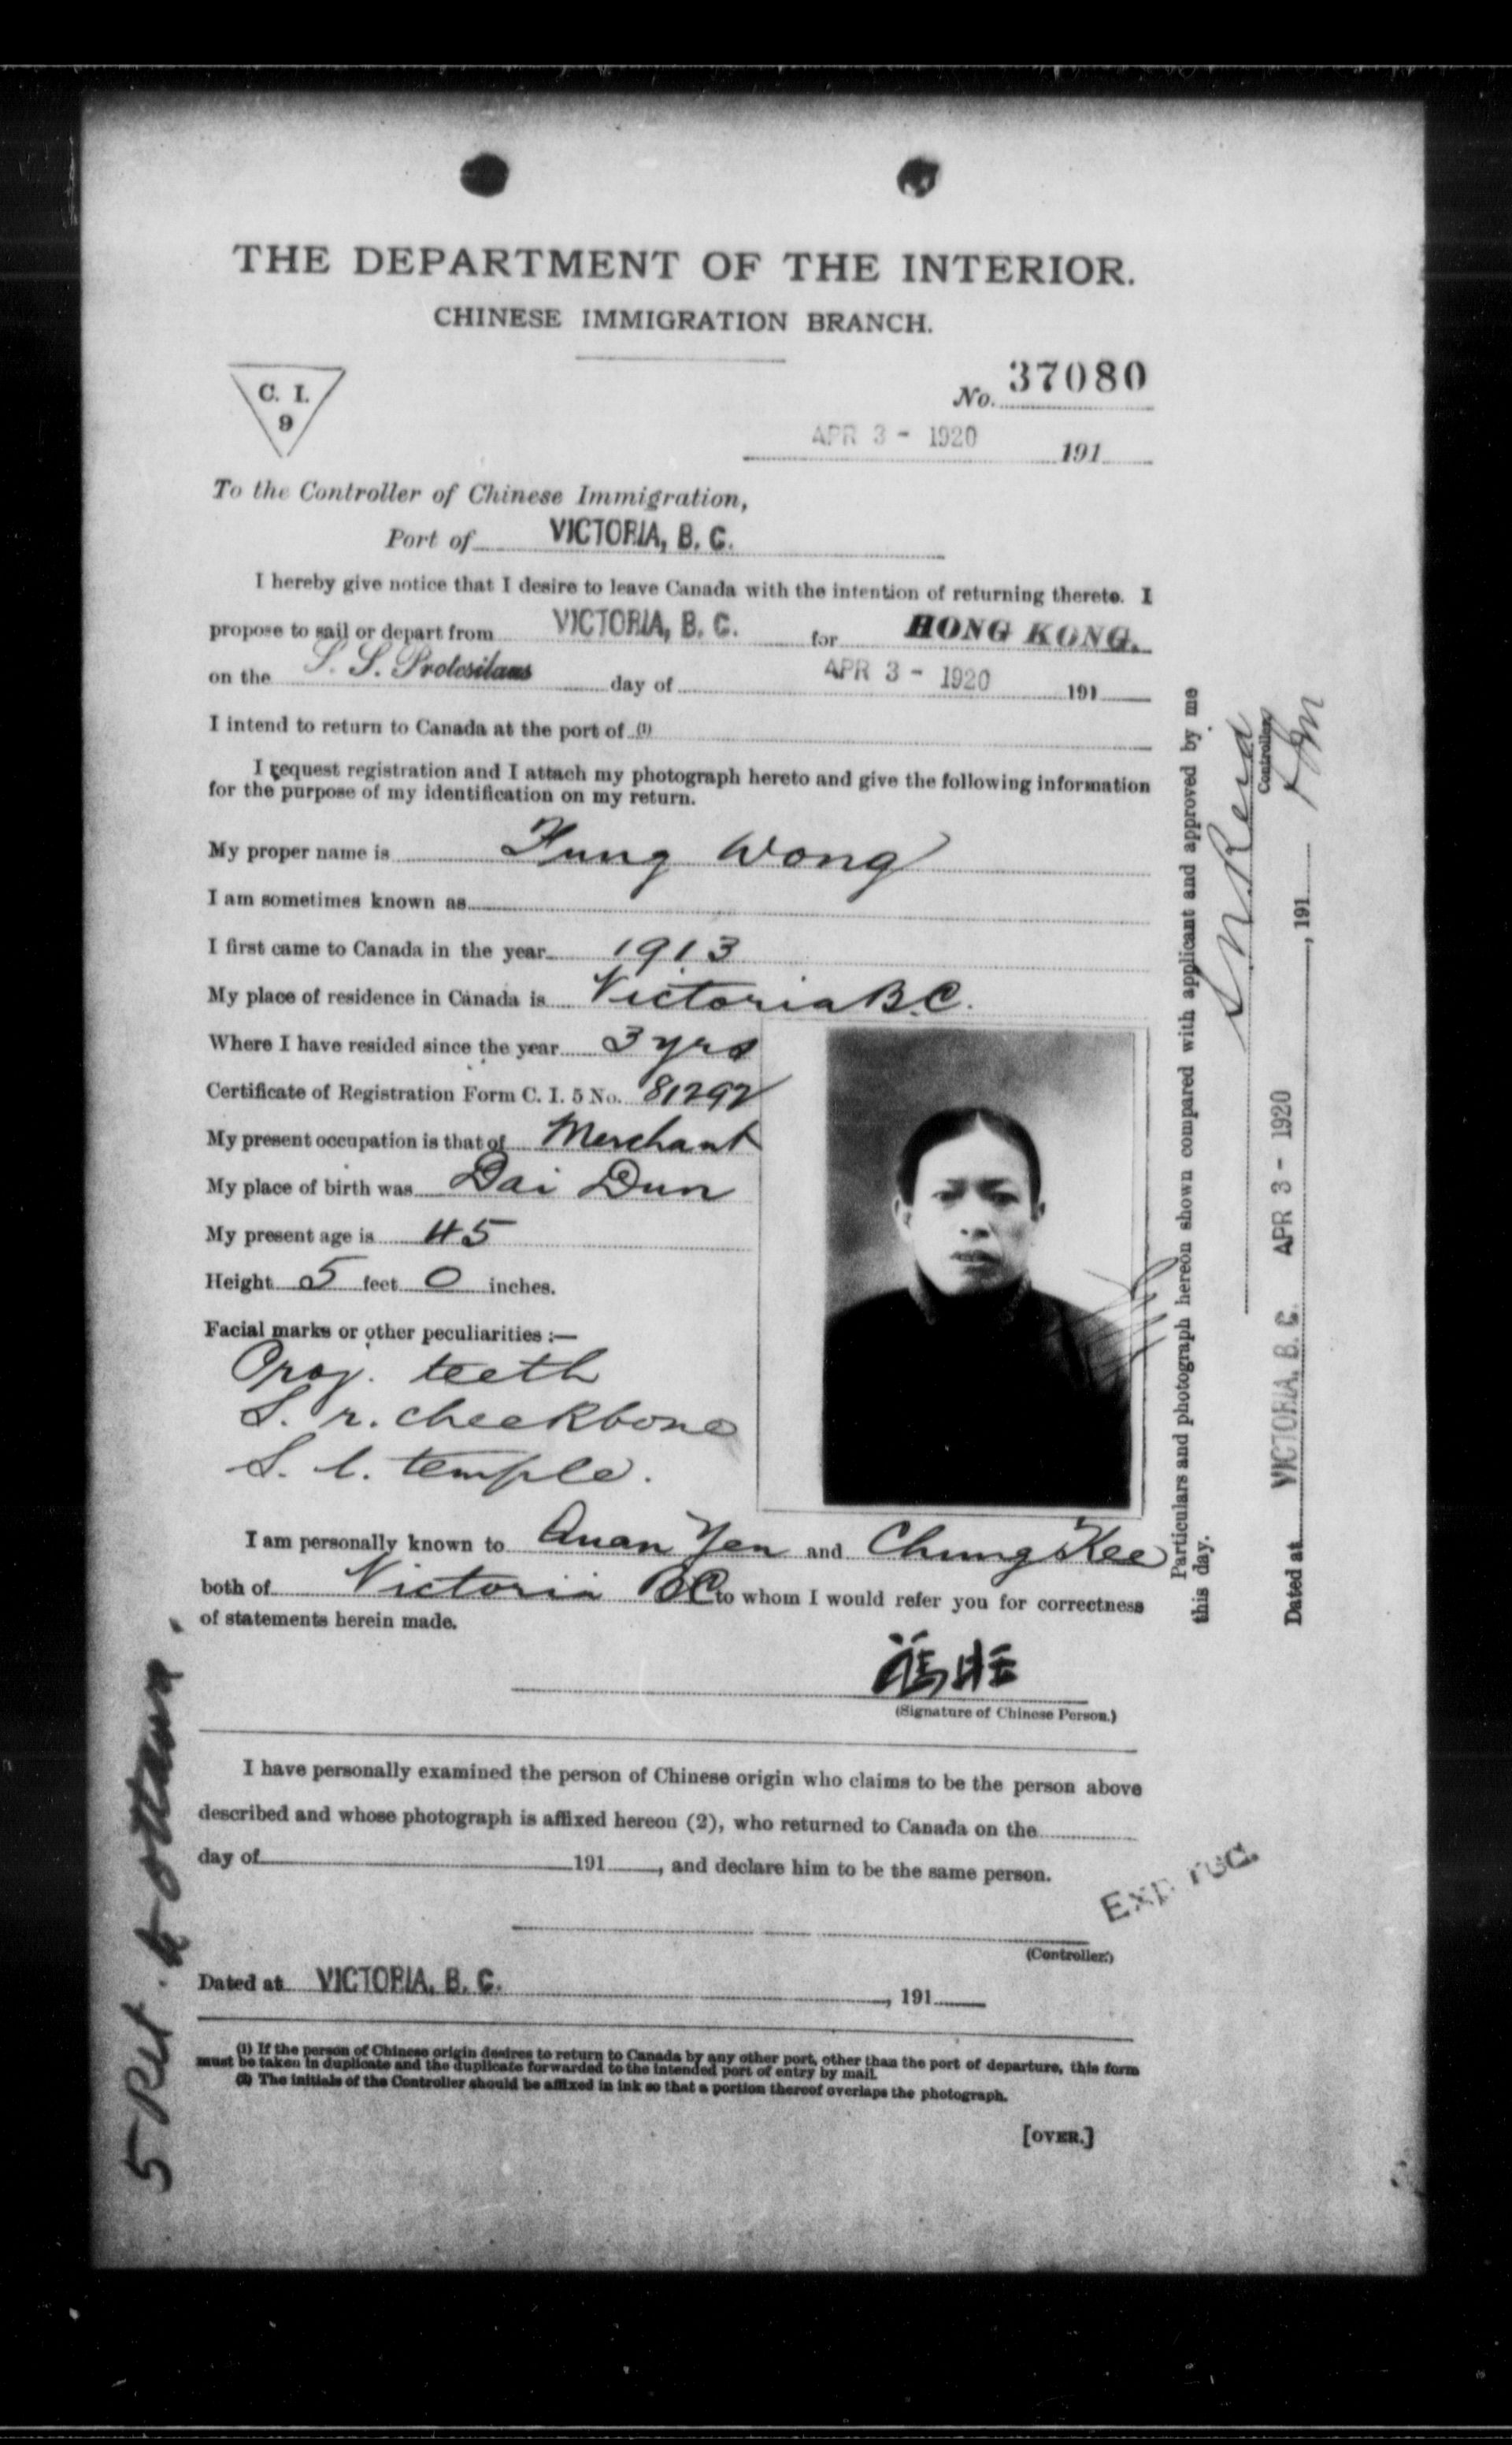 THE DEPARTMENT OF THE INTERIOR.
CHINESE IMMIGRATION BRANCH.
C. I.
9
No. 37080
APR 3 - 1920 191
To the Controller of Chinese Immigration,
Port of VICTORIA, B. C.
I hereby give notice that I desire to leave Canada with the intention of returning thereto. I
propose to sail or depart from VICTORIA, B. C. for HONG KONG.
on the S. S. Protesilaus day of APR 3 - 1920 191
I intend to return to Canada at the port of (1)
I request registration and I attach my photograph hereto and give the following information
for the purpose of my identification on my return.
My proper name is Fung Wong
I am sometimes known as
I first came to Canada in the year 1913
My place of residence in Canada is Victoria B.C.
Where I have resided since the year 3 yrs
Certificate of Registration Form C. I. 5 No. 81292
My present occupation is that of Merchant
My place of birth was Dai Dun
My present age is 45
Height 5 feet 0 inches.
Facial marks or other peculiarities :—
Proj. teeth
S. r. cheekbone
S. l. temple.
I am personally known to Quan Yen and Chung Kee
both of Victoria BC to whom I would refer you for correctness
of statements herein made.
馮旺
(Signature of Chinese Person.)
I have personally examined the person of Chinese origin who claims to be the person above
described and whose photograph is affixed hereon (2), who returned to Canada on the
day of 191 , and declare him to be the same person.
(Controller.)
Dated at VICTORIA, B. C. , 191
(1) If the person of Chinese origin desires to return to Canada by any other port, other than the port of departure, this form
must be taken in duplicate and the duplicate forwarded to the intended port of entry by mail.
(2) The initials of the Controller should be affixed in ink so that a portion thereof overlaps the photograph.
[OVER.]
Particulars and photograph hereon shown compared with applicant and approved by me
this day.
Controller
Dated at VICTORIA, B. C. APR 3 - 1920 , 191
5 Ret. to Ottawa.